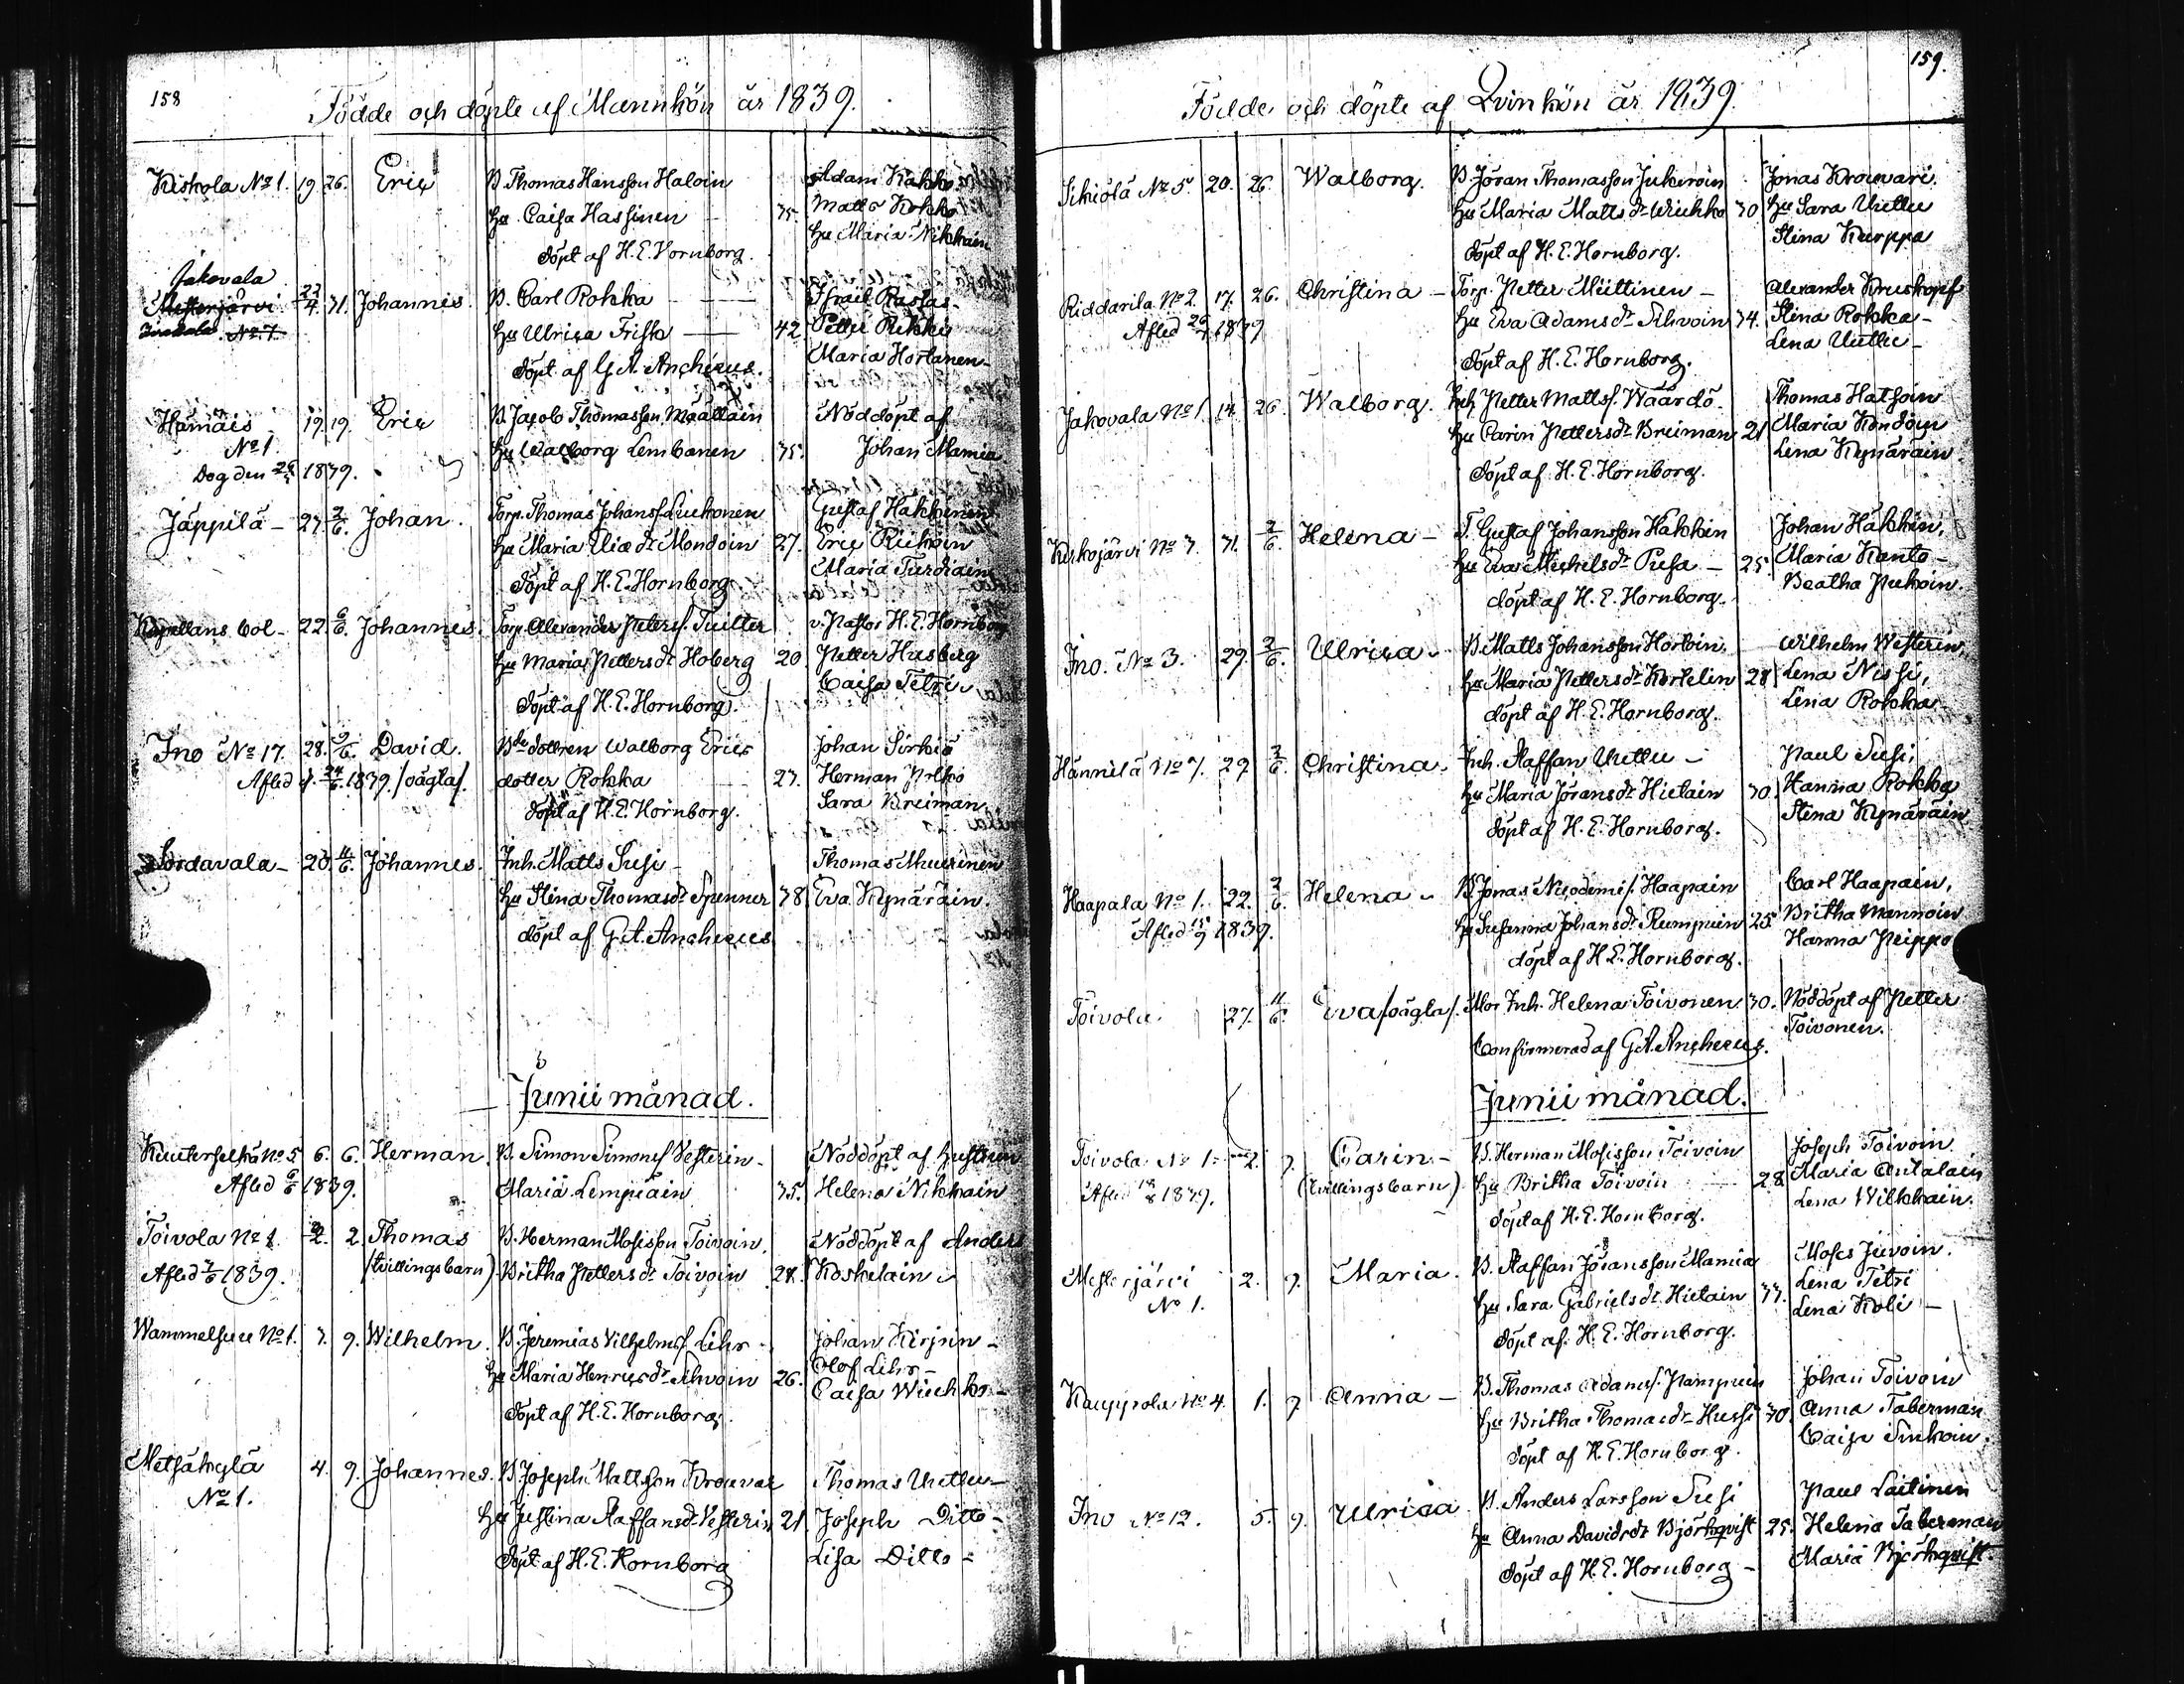 158
Födde och döpte af Mannkön år 1839.
Kiskola No 1. 19. 26. Eric B. Thomas Hansson Haloin Adam Kakko
Hu Caisa Hassinen 35. Matts Kokko
Hu Maria Nikkain
döpt af H. E. Hornborg.
Jakovala
Mesterjärvi 23/4. 31. Johannes. B. Carl Rokka Israël Rastas
No 1. Hu Ulrica Frisk 42 Petter Pekki
Maria Hortanen
döpt af G. A. Ancherus.
Hämäis 19. 19. Eric B. Jacob Thomasson Määttäin Nöddöpt af
No 1. Hu Walborg Lembanen 35. Johan Mamia
Dog den 1839.
Jäppilä 27. 2/6. Johan. Torp. Thomas Johanss. Liukonen Gustaf Häkkinen
Hu Maria Elia dr Mondoin 27. Eric Riikoin
Maria Turdiain
döpt af H. E. Hornborg
Kapellans Bol 22. 6/6. Johannes. Torp. Alexander Peterss. Tuitter v. Pastor H. E. Hornborg
Hu Maria Pettersdr Hoberg 20 Petter Husberg
Caisa Tetri
döpt af H. E. Hornborg.
Ino No 17. 28. 9/6. David. Bde dottren Walborg Erics Johan Sirkiä
Afled d. 24/6. 1839. /oägta/. dotter Rokka 27. Herman Polko
Sara Breiman
döpt af H. E. Hornborg.
Sordavala 20. 11/6. Johannes. Inh. Matts Susi Thomas Muurinen
Hu Stina Thomasdr Spenner 38 Eva Kynäräin.
döpt af G. A. Ancherus
Junii månad.
Kuuterselkä No 5 6. 6. Herman. B. Simon Simonss Vesterin Nöddöpt af hustrun
Afled 6/6 1839. Maria Lempiain 35. Helena Nikkain
Toivola No 1. 2. 2. Thomas B. Herman Mosisson Toivoin. Nöddöpt af Anders
Afled 7/6 1839. (tvillingsbarn) Britha Pettersdr Toivoin 28. Koskelain
Wammelsuu No 1. 3. 9. Wilhelm. B. Jeremias Vilhelmss Lihr Johan Kirpin
Hu Maria Henricsdr Silvoin 26. Olof Lihr
Caisa Wiechko
döpt af H. E. Hornborg.
Metsäkylä 4. 9. Johannes. B. Joseph Mattsson Krouvar Thomas Uuttu
No 1. Hu Justina Staffansdr Vesterin 21. Joseph Ditto
döpt af H. E. Hornborg Lisa Ditto
159.
Födde och döpte af Qvinkön år 1839.
Sikiölä No 5. 20. 26. Walborg. B. Jöran Thomasson Jukiroin Jonas Krouvari.
Hu Maria Matts dr Wiehko 30 Hu Sara Uuttu
Stina Kurppa
döpt af H. E. Hornborg.
Riddarila No 2. 17. 26. Christina Torp. Petter Miettinen Alexander Kruskopf
Afled 1839 Hu Eva Adams dr Silvoin 34. Stina Rokka
Lena Uuttu
döpt af H. E. Hornborg.
Jakovala No 1. 14. 26. Walborg. Inh. Petter Matts. Waardö Thomas Hatsoin
Hu Carin Petters dr Breiman 21 Maria Kondoin
Lena Kynäräin
döpt af H. E. Hornborg.
Kiskojärvi No 3. 31. 2/6. Helena T. Gustaf Johansson Häkkin Johan Häkkin,
Hu Eva Michelsdr Pusa 25. Maria Kanto
Beatha Pukoin.
döpt af H. E. Hornborg.
Ino. No 3. 29. 2/6. Ulrica B. Matts Johansson Hortoin. Wilhelm Westerin,
Hu Maria Petters dr Kortelin 28 Lena Nissi,
döpt af H. E. Hornborg. Lena Rokka
Hännilä No 7. 29. 2/6. Christina. Inh. Staffan Uuttu Paul Susi,
Hu Maria Jöransdr Hietain 30. Hanna Rokka
döpt af H. E. Hornborg. Stina Kynäräin
Haapala No 1. 22. 2/6. Helena B. Jonas Nicodemi/. Haapain Carl Haapain,
Afled 15/9 1839. Hu Susanna Johansdr Rumpuin 25 Britha Mannoin
Hanna Peippo
döpt af H. E. Hornborg.
Toivola. 27. 11/6. Eva /oägta/. Mor Inh. Helena Toivonen 30. Nöddöpt af Petter
Toivonen.
Confirmerad af G. A. Ancherus.
Junii månad.
Toivola No 1. 2. 9. Carin B. Herman Mosisson Toivoin Joseph Toivoin
Afled 1839. (tvillingsbarn) Hu Britha Toivoin 28 Maria Antalain
Lena Wilkkain.
döpt af H. E. Hornborg.
Mesterjärvi 2. 9. Maria. B. Staffan Jöransson Mamia Moses Juvoin.
No 1. Hu Sara Gabrielsdr Hietain 33. Lena Tetri
Lena Koli
döpt af H. E. Hornborg.
Kauppola No 4. 1. 9 Anna B. Thomas Adamss. Pampuin Johan Toivoin
Hu Britha Thomasdr Hussi 30 Anna Taberman
Caisa Sinkoin.
döpt af H. E. Hornborg.
Ino No 12. 5. 9. Ulrica B. Anders Larsson Susi Paul Laitinen
Hu Anna Davidsdr Björkqvist 25. Helena Taberman
döpt af H. E. Hornborg Maria Björkqvist.